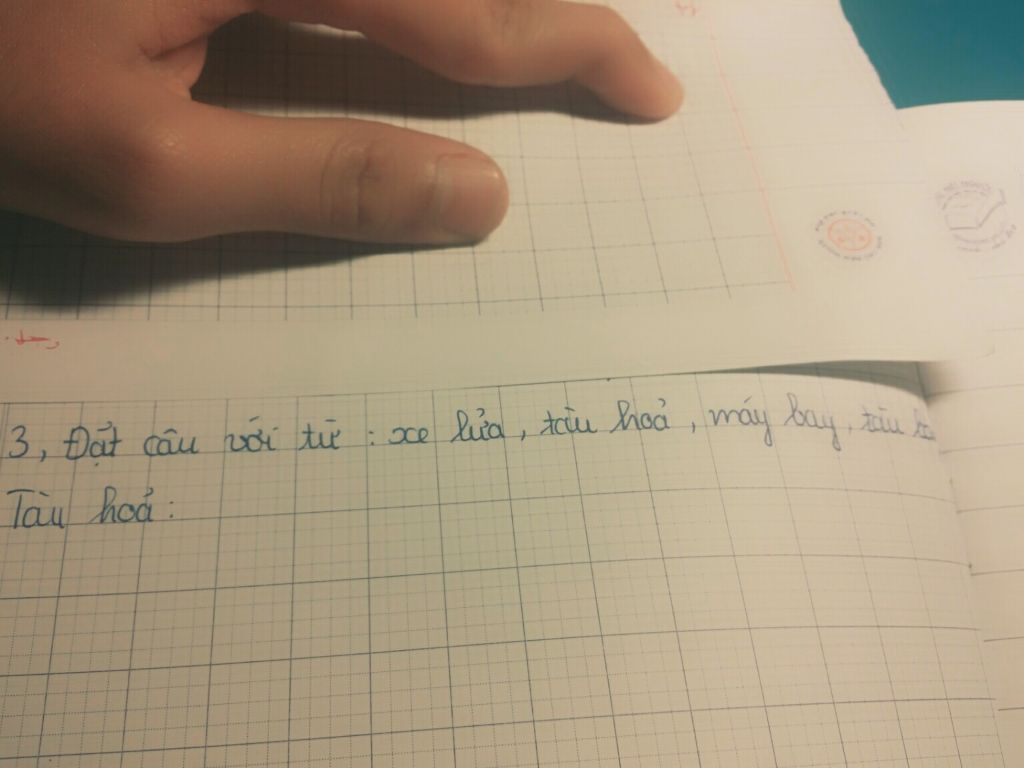 3, Đặt câu với từ : xe lửa, tàu hoả, máy bay, tàu
Tàu hoả :